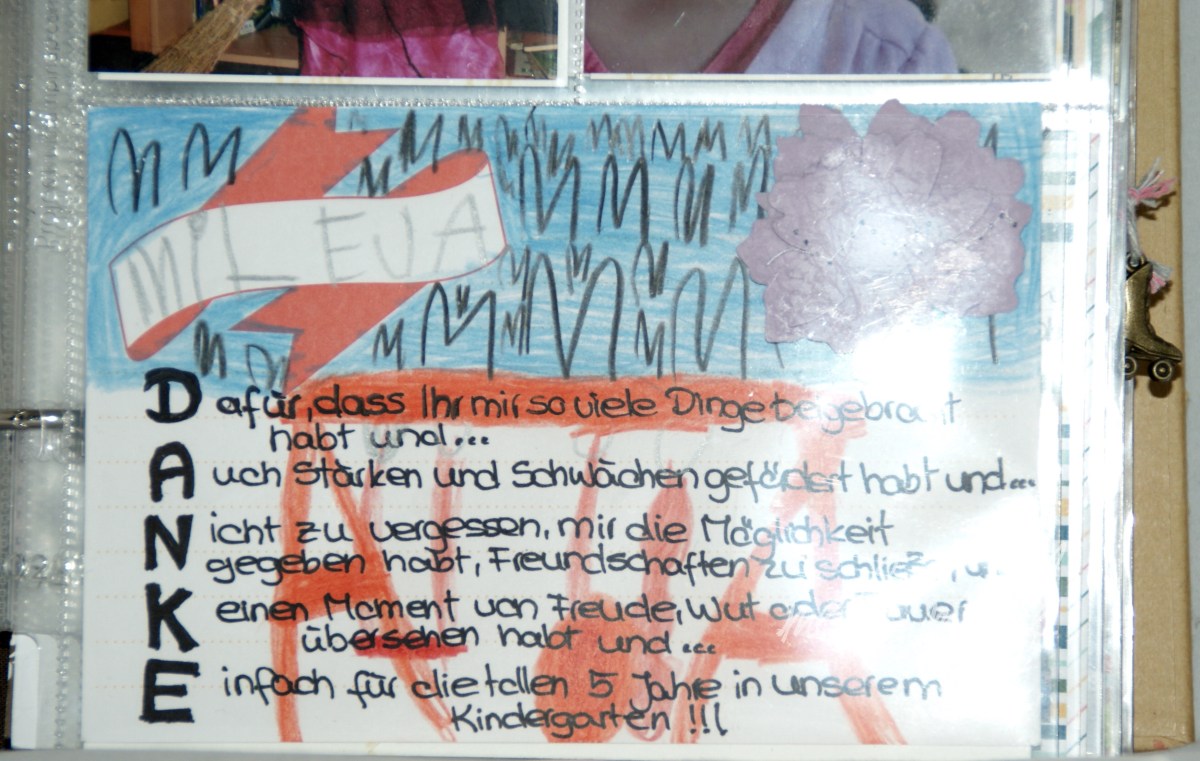 MILEVA
Dafür, dass Ihr mir so viele Dinge beigebracht
habt und...
Auch Stärken und Schwächen gefördert habt und...
Nicht zu vergessen, mir die Möglichkeit
gegeben habt, Freundschaften zu
Keinen Moment von Freude, Wut oder
übersehen habt und...
Einfach für die tollen 5 Jahre in unserem
Kindergarten !!!